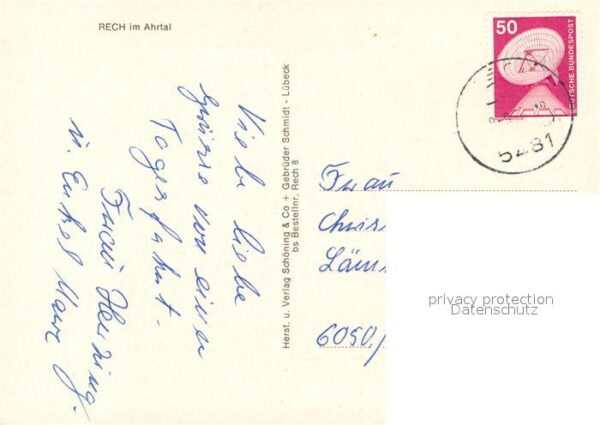 RECH im Ahrtal
Viele liebe
Grüsse von einer
Tagesfahrt.
Frau Henning
u. Enkel Marc J.
Herst. u. Verlag Schöning & Co + Gebrüder Schmidt - Lübeck
bs Bestellnr. Rech 8
50
DEUTSCHE BUNDESPOST
5481
Frau
Chris
Läm
6050
privacy protection
Datenschutz